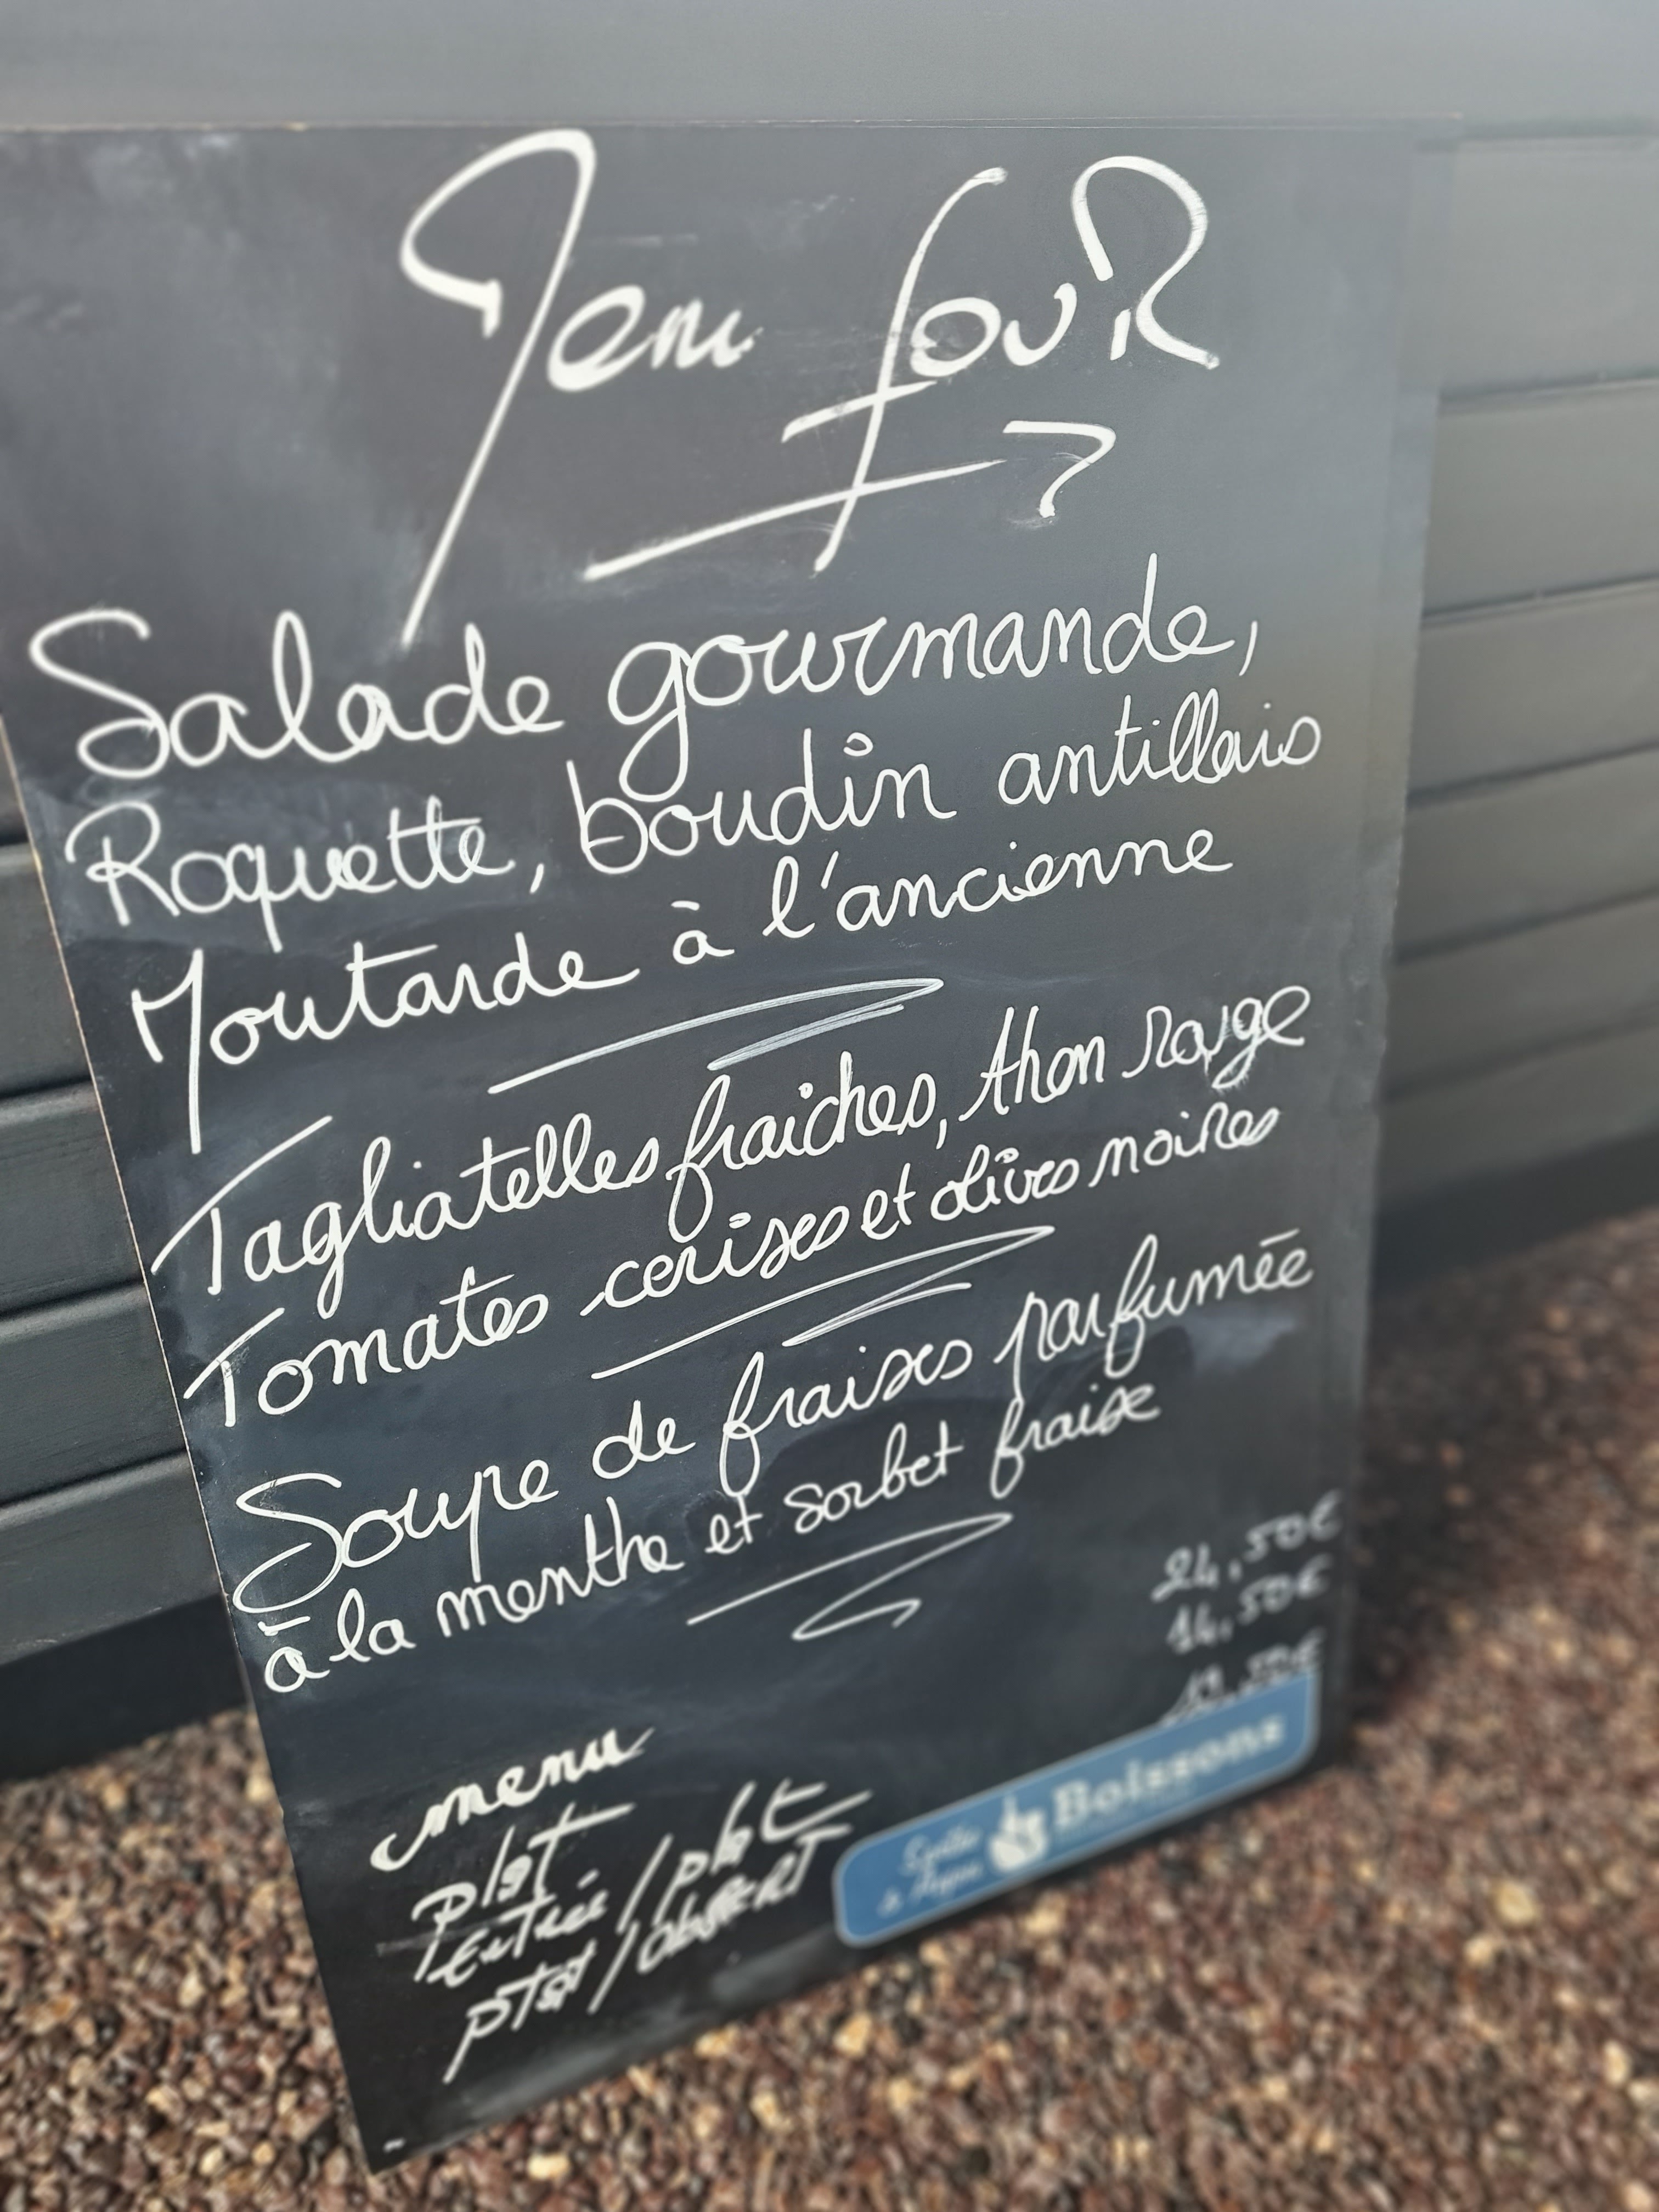 Menu Jour
Salade gourmande,
Roquette, boudin antillais
Moutarde à l'ancienne
Tagliatelles fraîches, thon rouge
Tomates cerises et olives noires
Soupe de fraises parfumée
à la menthe et sorbet fraise
24,50€
14,50€
19,50€
menu
plat
Entrée/plat
plat/dessert
Boissons